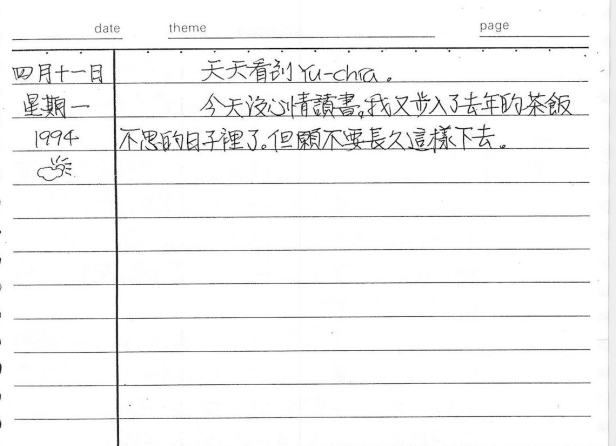 date theme page
四月十一日 天天看到Yu-chia。
星期一 今天沒心情讀書,我又步入了去年的茶飯
1994 不思的日子裡了。但願不要長久這樣下去。